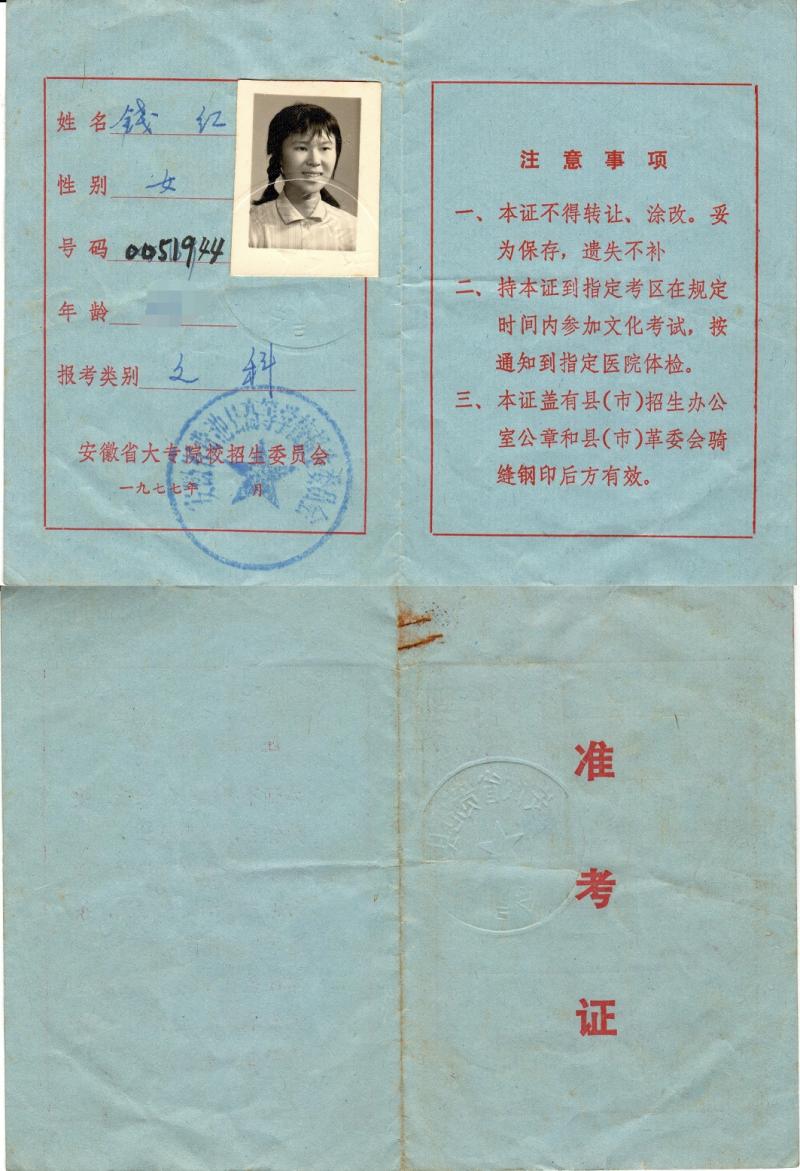 姓名 錢红
性别 女
号码 0051944
年龄
报考类别 文科
安徽省大专院校招生委员会
一九七七年 月
注意事项
一、本证不得转让、涂改。妥
为保存，遗失不补
二、持本证到指定考区在规定
时间内参加文化考试，按
通知到指定医院体检。
三、本证盖有县(市)招生办公
室公章和县(市)革委会骑
缝钢印后方有效。
准
考
证